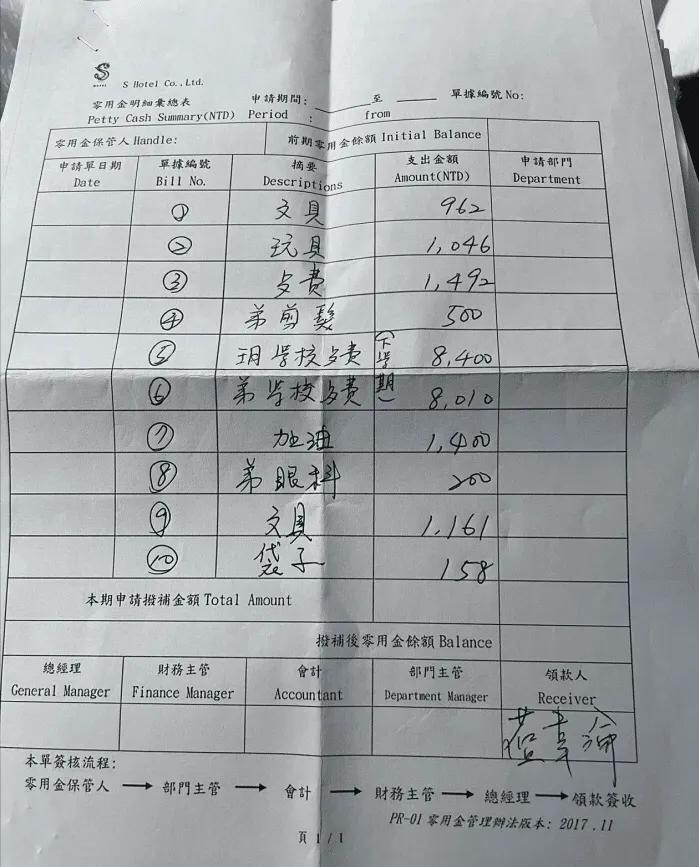 S
S Hotel Co.,Ltd.
零用金明細彙總表 申請期間: 至 單據編號 No:
Petty Cash Summary(NTD) Period : from
零用金保管人 Handle: 前期零用金餘額 Initial Balance
申請單日期 單據編號 摘要 支出金額 申請部門
Date Bill No. Descriptions Amount(NTD) Department
① 文具 962
② 玩具 1,046
③ 餐費 1,492
④ 弟剪髮 500
⑤ 玥學校餐費(下學期) 8,400
⑥ 弟學校餐費 8,010
⑦ 加油 1,400
⑧ 弟眼科 200
⑨ 文具 1,161
⑩ 袋子 158
本期申請撥補金額 Total Amount
撥補後零用金餘額 Balance
總經理 財務主管 會計 部門主管 領款人
General Manager Finance Manager Accountant Department Manager Receiver
本單簽核流程:
零用金保管人 → 部門主管 → 會計 → 財務主管 → 總經理 → 領款簽收
PR-01 零用金管理辦法版本: 2017.11
頁 1 / 1